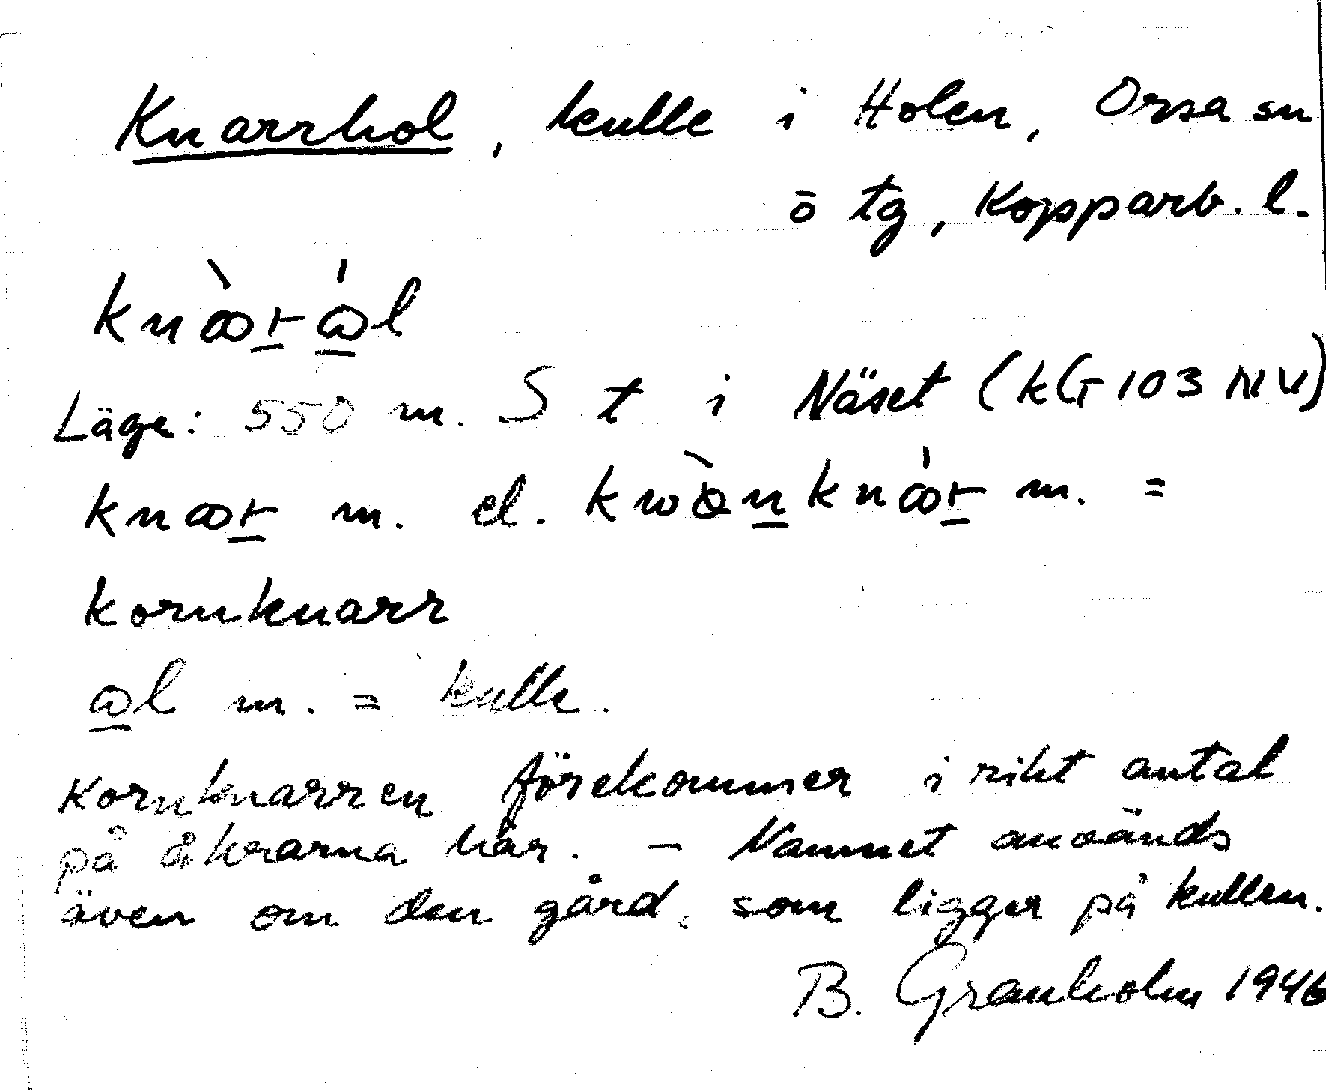 Knarrhol, kulle i Holen, Orsa sn
ö tg, Kopparb. l.
Läge: 550 m. S t i Näset (kG 103 NV)
m. el. m. =
kornknarr
m. = kulle.
Kornknarren förekommer i rikt antal
på åkrarna här. – Namnet används
även om den gård, som ligger på kullen.
B. Granholm 1946